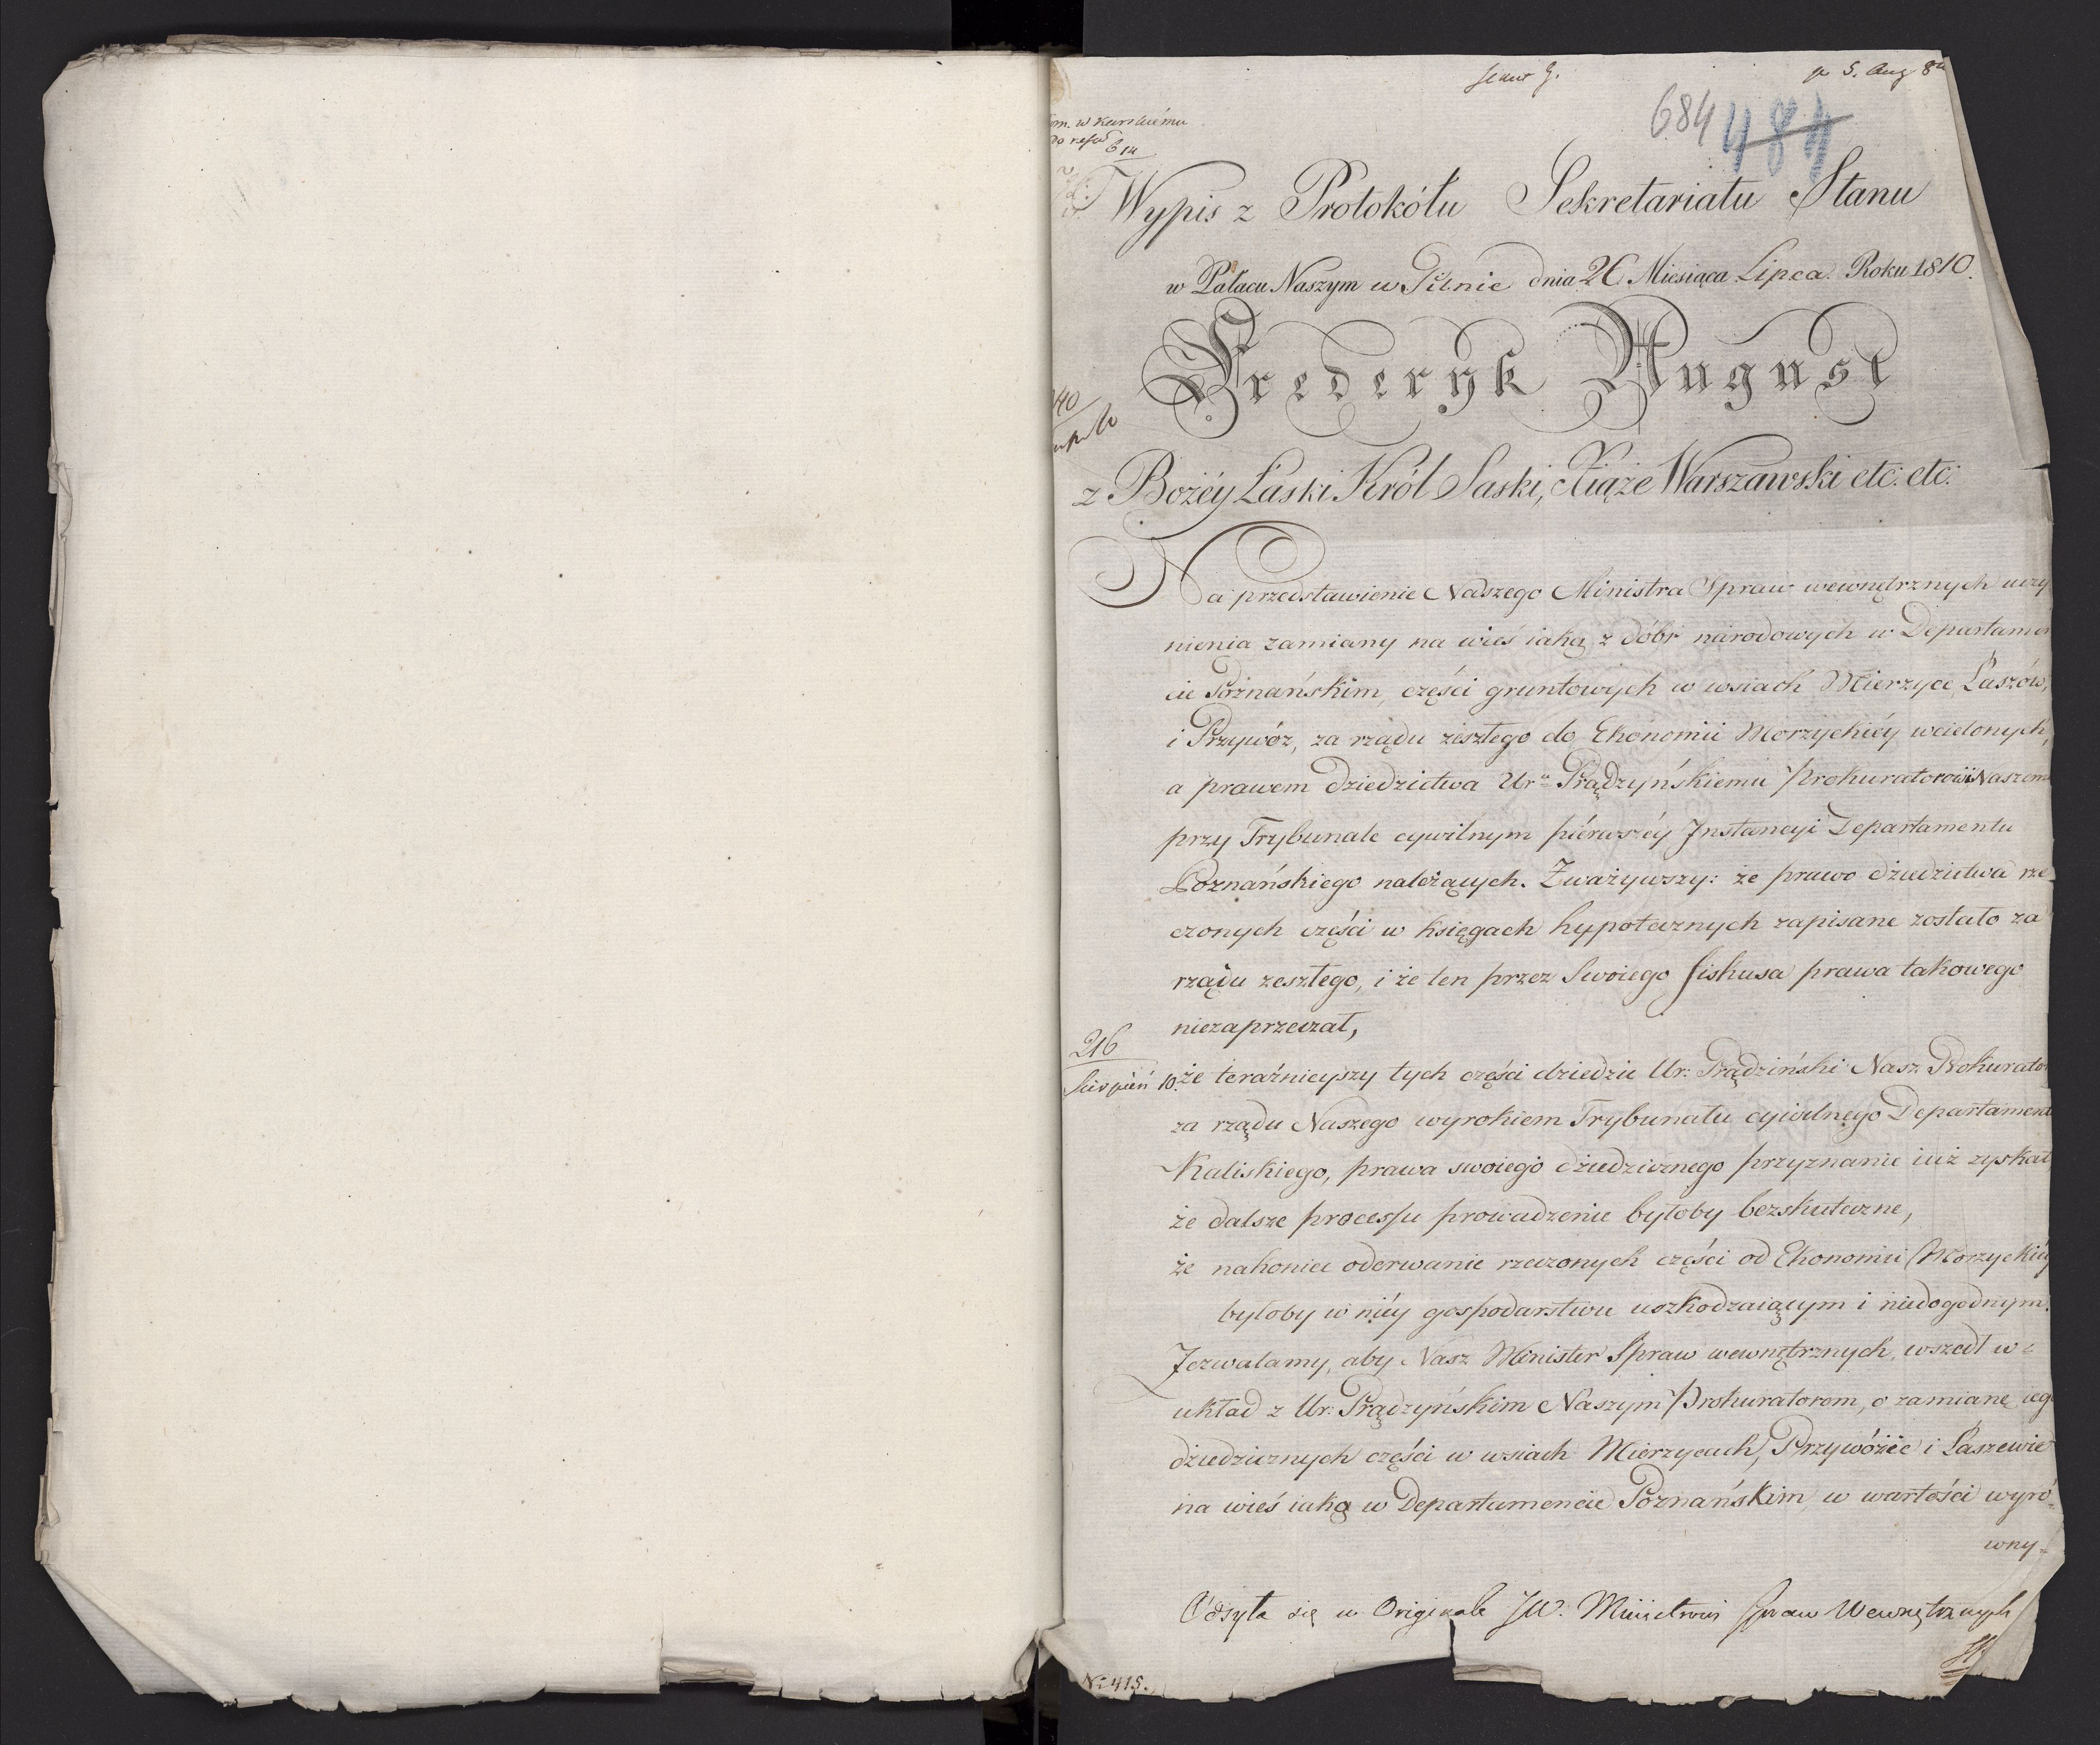 p 5. Aug
684 484
Wypis z Protokółu Sekretariatu Stanu
w Pałacu Naszym w Pilnic dnia 26 Miesiąca Lipca Roku 1810.
Frederyk August
z Bożéy Łaski Król Saski, Xiąże Warszawski etc: etc:
Na przedstawienie Naszego Ministra Spraw wewnętrznych uczy
nienia zamiany na wieś iaką z dóbr narodowych w Departamen
cie Poznańskim, części gruntowych w wsiach Mierzyce, Łaszów,
i Przywóz, za rządu zeszłego do Ekonomii Morzyckiéy wcielonych,
a prawem dziedzictwa Ur: Prądzyńskiemu Prokuratorowi Naszem
przy Trybunale cywilnym piérwszéy Instancyi Departamentu
Poznańskiego należących. Zważywszy: że prawo dziedzictwa rze
czonych części w księgach hypotecznych zapisane zostało za
rządu zeszłego, i że ten przez Swoiego fiskusa prawa takowego
niezaprzeczał,
216
Sierpień 10.
że teraźnieyszy tych części dziedzic Ur: Prądziński Nasz Prokurator
za rządu Naszego wyrokiem Trybunału cywilnego Departament
Kaliskiego, prawa swoiego dziedzicznego przyznanie iuż zyskał,
że dalsze processu prowadzenie byłoby bezskuteczne,
że nakoniec oderwanie rzeczonych części od Ekonomii Morzyckiéy
byłoby w niéy gospodarstwu uszkodzaiącym i niedogodnym.
Zezwalamy, aby Nasz Minister Spraw wewnętrznych, wszedł w
układ z Ur: Prądzyńskim Naszym Prokuratorem, o zamianę ieg
dziedzicznych części w wsiach Mierzycach, Przywózie i Łaszewie
na wieś iaką w Departamencie Poznańskim, w wartości wyró-
wny-
Odsyła się w Originale JW. Ministrowi Spraw Wewnętrznych
No 415.